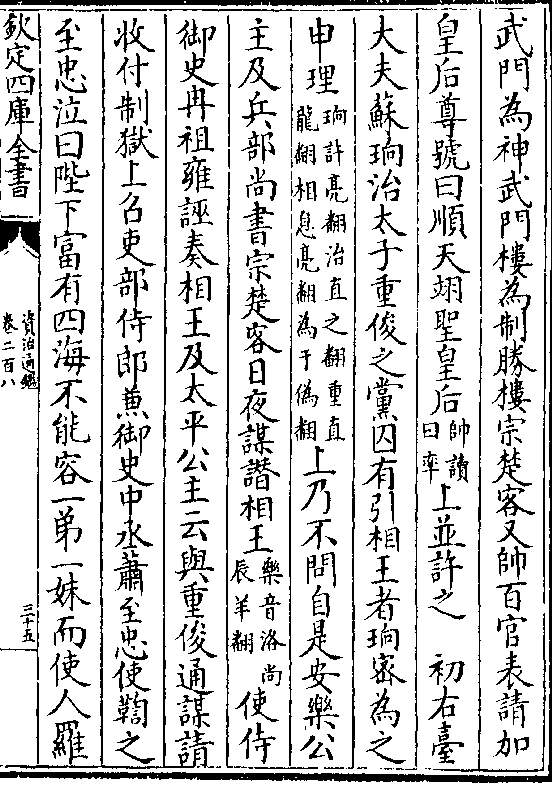 武門為神武門樓為制勝樓宗楚客又帥百官表請加
皇后尊號曰順天翊聖皇后帥讀曰率上並許之　初右臺
大夫蘇珦治太子重俊之黨囚有引相王者珦密為之
申理珦許亮翻治直之翻重直龍翻相息亮翻為于偽翻上乃不問自是安樂公
主及兵部尚書宗楚客日夜謀譖相王樂音洛尚辰羊翻使侍
御史冉祖雍誣奏相王及太平公主云與重俊通謀請
收付制獄上召吏部侍郎兼御史中丞蕭至忠使鞫之
至忠泣曰陛下富有四海不能容一弟一妹而使人羅
欽定四庫全書
資治通鑑
卷二百八
三十五